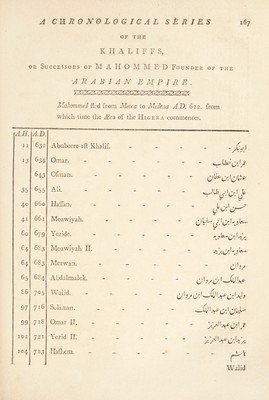 A CHRONOLOGICAL SERIES 167
OF THE
KHALIFFS,
OR SUCCESSORS OF MAHOMMED FOUNDER OF THE
ARABIAN EMPIRE.
Mahommed fled from Mecca to Medina A.D. 622. from
which time the Æra of the HIGERA commences.
A.H. A.D.
11 632 Abubecre 1st Khalif. - - - ابوبكر
13 634 Omar. - - - - عمر ابن خطاب
643 Osman. - - - - عثمان ابن عفان
35 655 Ali. - - - - علي ابن ابي طالب
40 660 Hassan. - - - - حسن ابن علي
41 661 Moawiyah. - - - معاويه ابن ابي سفيان
60 679 Yezid. - - - - يزيد ابن معاويه
64 683 Moawiyah II. - - - معاويه ابن يزيد
64 683 Merwan. - - - - مروان
65 684 Abdalmalek. - - - عبد الملك ابن مروان
86 705 Walid. - - - وليد ابن عبد الملك ابن مروان
97 716 Soliman. - - - سليمان ابن عبد الملك
99 718 Omar II. - - - عمر ابن عبد العزيز
102 721 Yezid II. - - - يزيد ابن عبد العزيز
104 723 Hashem. - - - - هاشم
Walid